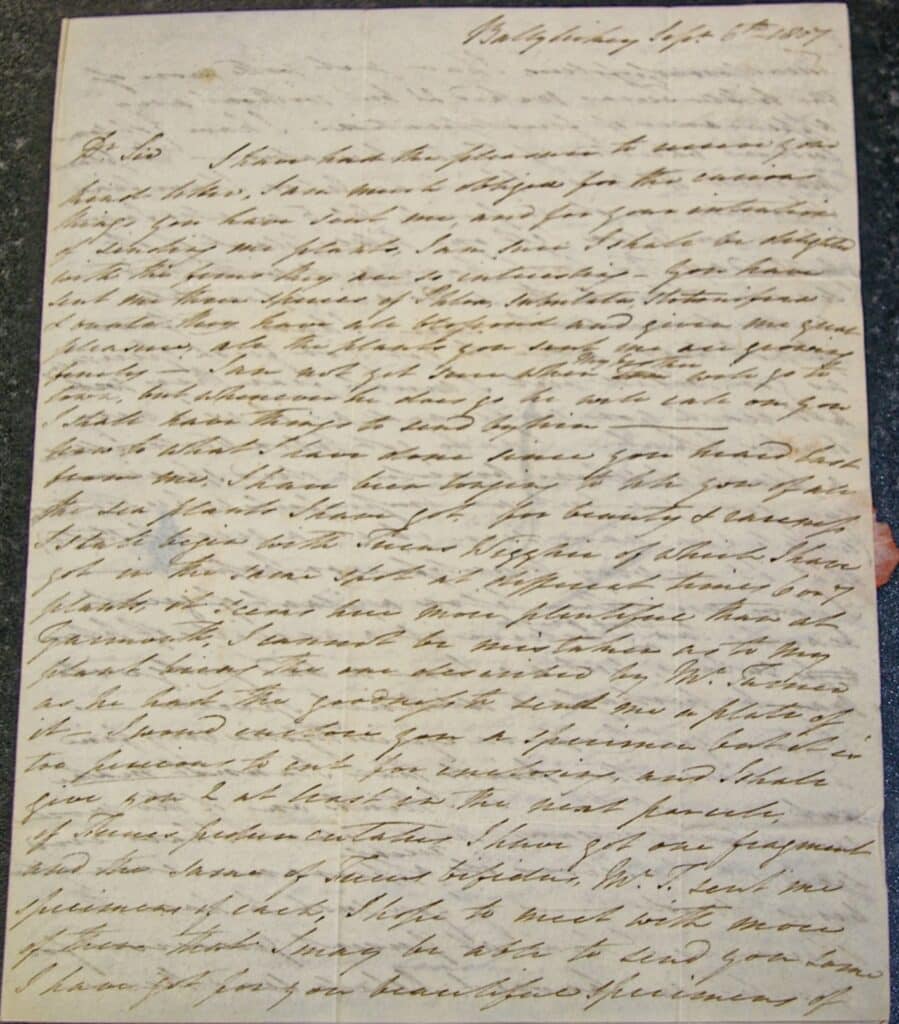 Ballylickey Sept 6th 1807
Dr Sir I have had the pleasure to receive your
kind letter, I am much obliged for the curious
things you have sent me, and for your intention
of sending me plants, I am sure I shall be delighted
with the ferns they are so interesting — You have
sent me three species of Phlox, subulata, stolonifera
& ovata they have all blossomd and given me great
pleasure, all the plants you sent me are growing
finely — I am not yet sure when my Brother will go to
town, but whenever he does go he will call on you
I shall have things to send by him —
Now to what I have done since you heard last
from me. I have been longing to tell you of all
the sea plants I have got. for beauty & rareness
I shall begin with Fucus Wigghii of which I have
got in the same spot at different times 6 or 7
plants, it seems here more plentiful than at
Yarmouth, I cannot be mistaken as to my
plant being the one described by Mr. Turner
as he had the goodness to send me a plate of
it — I would enclose you a specimen but it is
too precious to cut for enclosing, and I shall
give you 2 at least in the next parcel,
of Fucus pedunculatus I have got one fragment
and the same of Fucus bifidus, Mr. T. sent me
specimens of each, I hope to meet with more
of them that I may be able to send you some
I have got for you beautiful specimens of